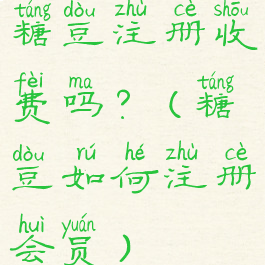 táng dòu zhù cè shōu
糖豆注册收
fèi ma táng
费吗?(糖
dòu rú hé zhù cè
豆如何注册
huì yuán
会员)